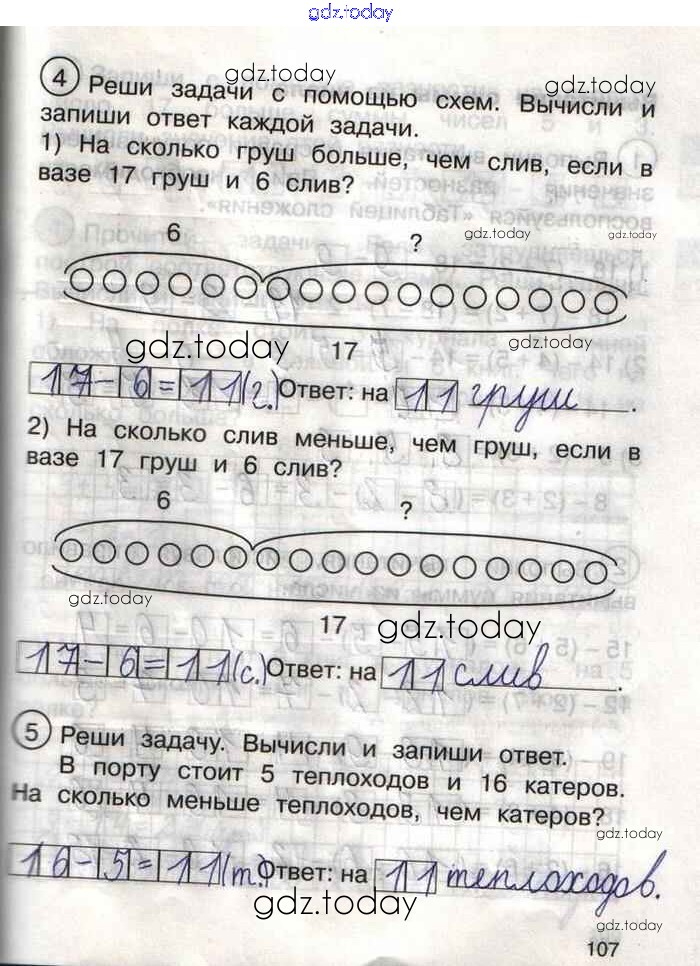 gdz.today
4 Реши задачи с помощью схем. Вычисли и
запиши ответ каждой задачи.
1) На сколько груш больше, чем слив, если в
вазе 17 груш и 6 слив?
6 ?
17
17-6=11(г.) Ответ: на 11 груш.
2) На сколько слив меньше, чем груш, если в
вазе 17 груш и 6 слив?
6 ?
17
17-6=11(с.) Ответ: на 11 слив.
5 Реши задачу. Вычисли и запиши ответ.
В порту стоит 5 теплоходов и 16 катеров.
На сколько меньше теплоходов, чем катеров?
16-5=11(т.) Ответ: на 11 теплоходов.
gdz.today
107